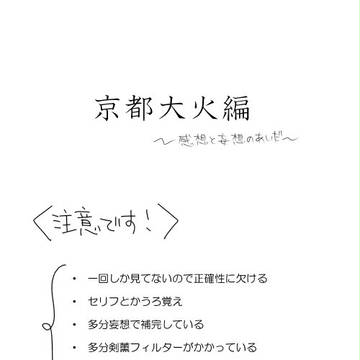 京都大火編
〜感想と妄想のあいだ〜
〈注意です！〉
・ 一回しか見てないので正確性に欠ける
・ セリフとかうろ覚え
・ 多分妄想で補完している
・ 多分剣薫フィルターがかかっている